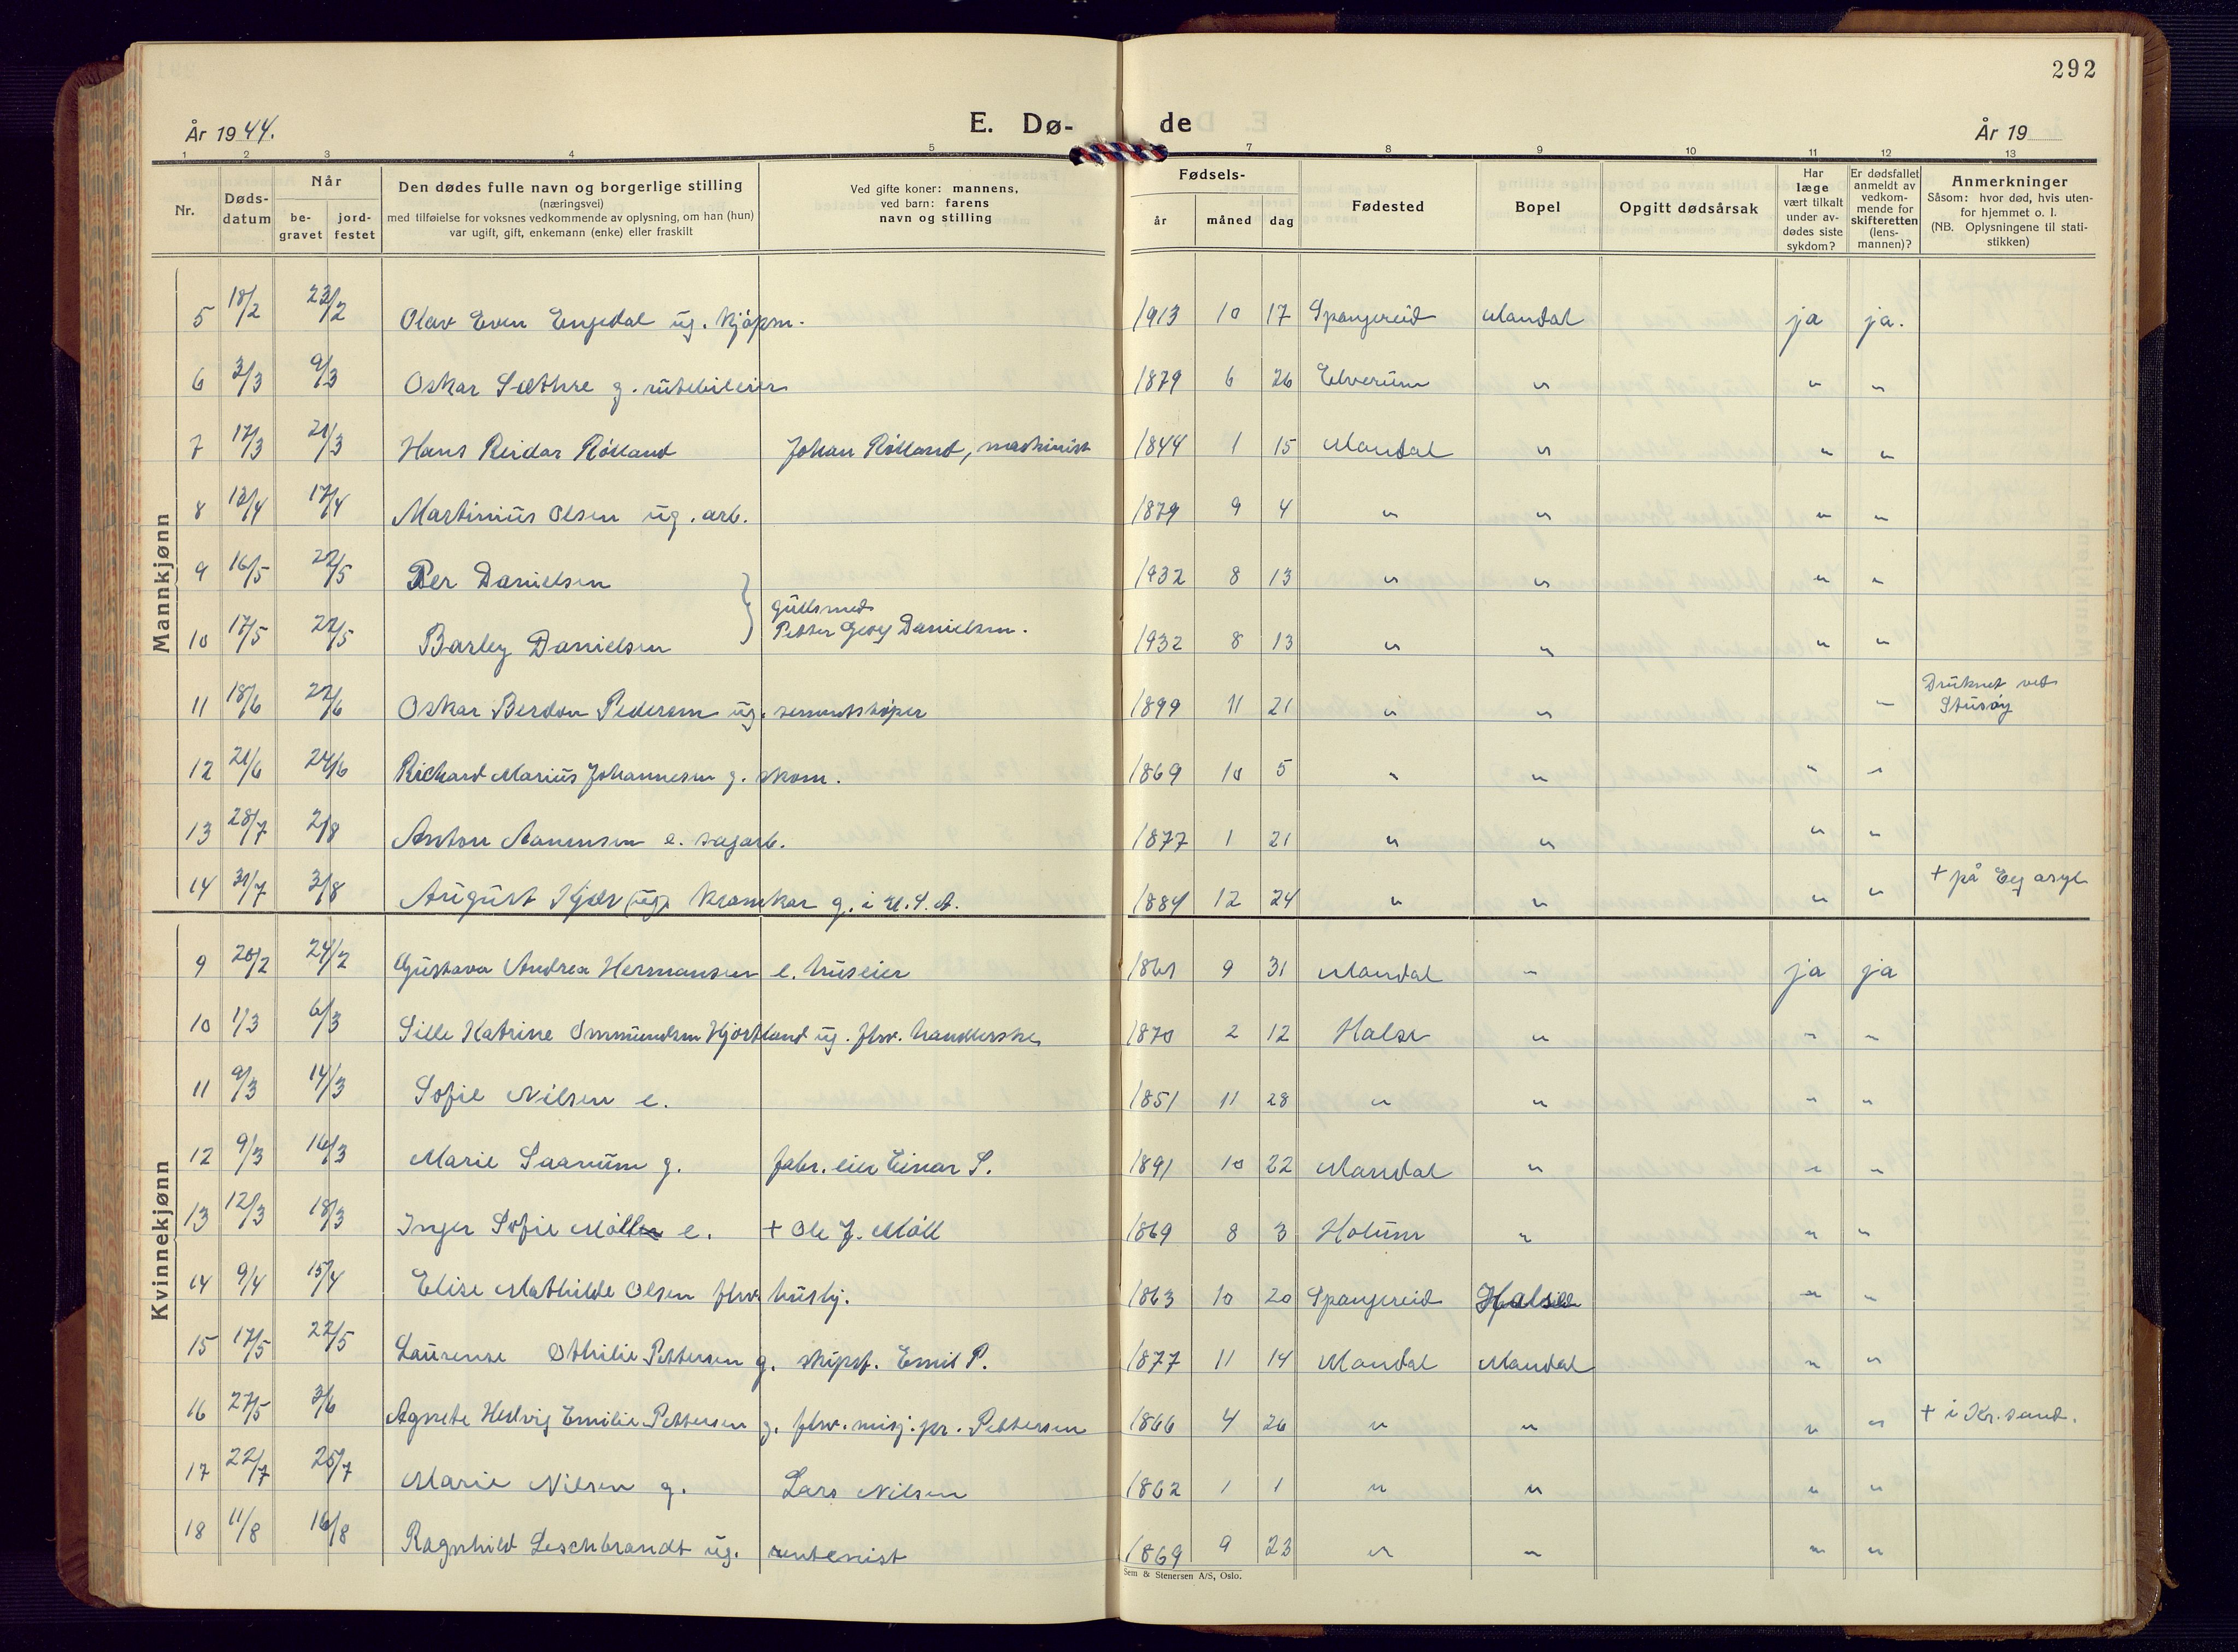 292
År 1944.
E. Dø-
de
År 19
1 2 3 4 5 7 8 9 10 11 12 13
Nr.
Døds-
datum
Når
be-
gravet
jord-
festet
Den dødes fulle navn og borgerlige stilling
(næringsvei)
med tilføielse for voksnes vedkommende av oplysning, om han (hun)
var ugift, gift, enkemann (enke) eller fraskilt
Ved gifte koner: mannens,
ved barn: farens
navn og stilling
Fødsels-
år
måned
dag
Fødested
Bopel
Opgitt dødsårsak
Har
læge
vært tilkalt
under av-
dødes siste
sykdom?
Er dødsfallet
anmeldt av
vedkom-
mende for
skifteretten
(lens-
mannen)?
Anmerkninger
Såsom: hvor død, hvis uten-
for hjemmet o. l.
(NB. Oplysningene til stati-
stikken)
Mannkjønn
5 18/2 23/2 Olav Even Engedal ug. kjøpm. 1913 10 17 Spangereid Mandal ja ja.
6 3/3 9/3 Oskar Sæthre g. rutebileier 1879 6 26 Elverum " " "
7 17/3 21/3 Hans Reidar Rölland Johan Rölland, maskinist 1844 1 15 Mandal " " "
8 13/4 17/4 Martinius Olsen ug. arb. 1879 9 4 " " " "
9 16/5 22/5 Per Danielsen 1932 8 13 " " " "
gullsmed
Petter Georg Danielsen.
10 17/5 22/5 Barley Danielsen 1932 8 13 " " " "
11 18/6 22/6 Oskar Berdon Pedersen ug. sementstøper 1899 11 21 " " " Druknet ved
Stusøy
12 21/6 24/6 Richard Marius Johannesen g. skom. 1869 10 5 " " " "
13 28/7 2/8 Anton Aanensen e. sagarb. 1877 1 21 " " " "
14 31/7 3/8 August Kjær (ug) g. i U.S.A. 1884 12 24 " " " " + på Eg asyl
Kvinnekjønn
9 20/2 24/2 Gustava Andrea Hermansen e. huseier 9 31 Mandal " ja ja
10 1/3 6/3 Sille Katrine Ommundsen Hjortland ug. fhv. handlerske 1870 2 12 Halse " " "
11 9/3 14/3 Sofie Nilsen e. 1851 11 28 " " " "
12 9/3 16/3 Marie Saanum g. fabr. eier Einar S. 1891 10 22 Mandal " " "
13 12/3 18/3 Inger Sofie Møll e. + Ole J. Møll 1869 8 3 Holum " " "
14 9/4 15/4 Elise Mathilde Olsen fhv husbj. 1863 10 20 Spangereid Halse " "
15 17/5 22/5 Laurense Othilie Pettersen g. skipsf. Emil P. 1877 11 14 Mandal Mandal " "
16 27/5 3/6 Agnete Hedvig Emilie Pettersen g. fhv. misj. pr. Pettersen 1866 4 26 " " " " + i Kr. sand.
17 22/7 25/7 Marie Nilsen g. Lars Nilsen 1862 1 1 " " " "
18 11/8 16/8 Ragnhild Leschbrandt ug. rentenist 1869 9 23 " " " "
Sem & Stenersen A/S, Oslo.